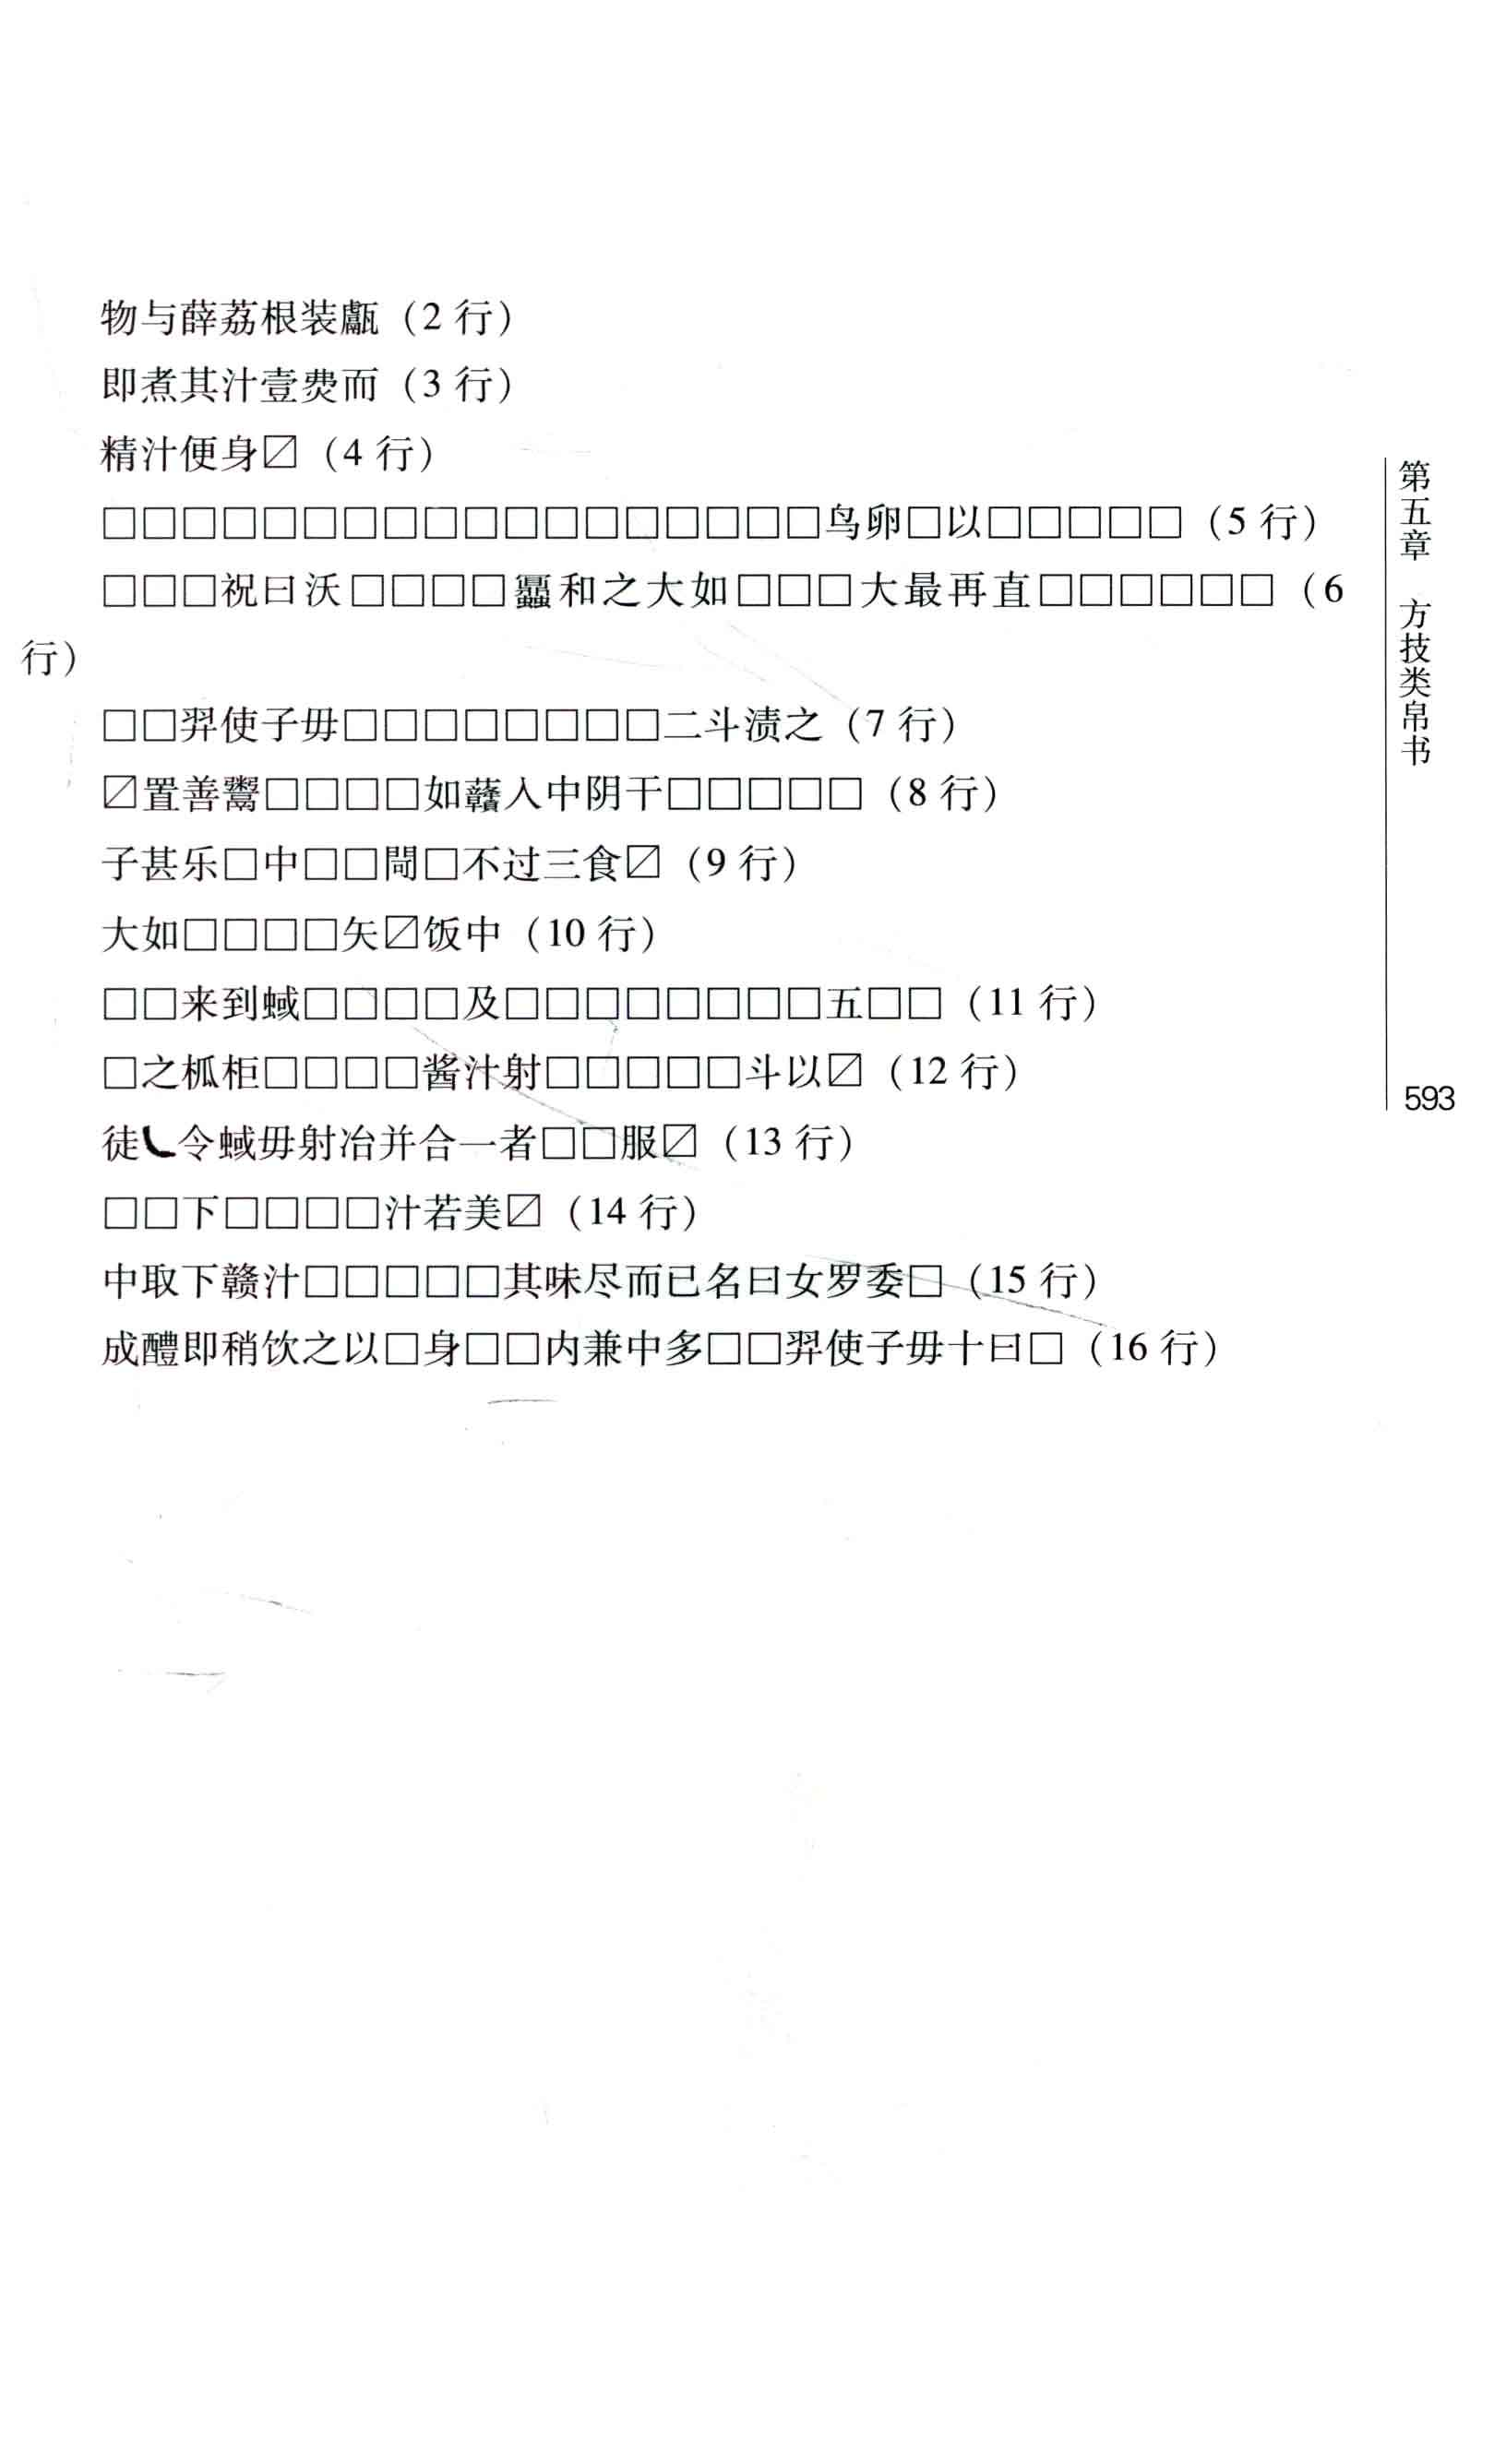 物与薛荔根装甗（2 行）
即煮其汁壹费而（3 行）
精汁便身〼（4 行）
□□□□□□□□□□□□□□□□□□鸟卵□以□□□□□（5 行）
□□□祝曰沃□□□□和之大如□□□大最再直□□□□□□（6
行）
□□羿使子毋□□□□□□□□二斗渍之（7 行）
〼置善鬻□□□□如虀入中阴干□□□□□（8 行）
子甚乐□中□□閜□不过三食〼（9 行）
大如□□□□矢〼饭中（10 行）
□□来到蜮□□□□及□□□□□□□□五□□（11 行）
□之柧柜□□□□酱汁射□□□□□斗以〼（12 行）
徒乚令蜮毋射冶并合一者□□服〼（13 行）
□□下□□□□汁若美〼（14 行）
中取下赣汁□□□□□其味尽而已名曰女罗委□（15 行）
成醴即稍饮之以□身□□内兼中多□□羿使子毋十曰□（16 行）
第五章 方技类帛书
593